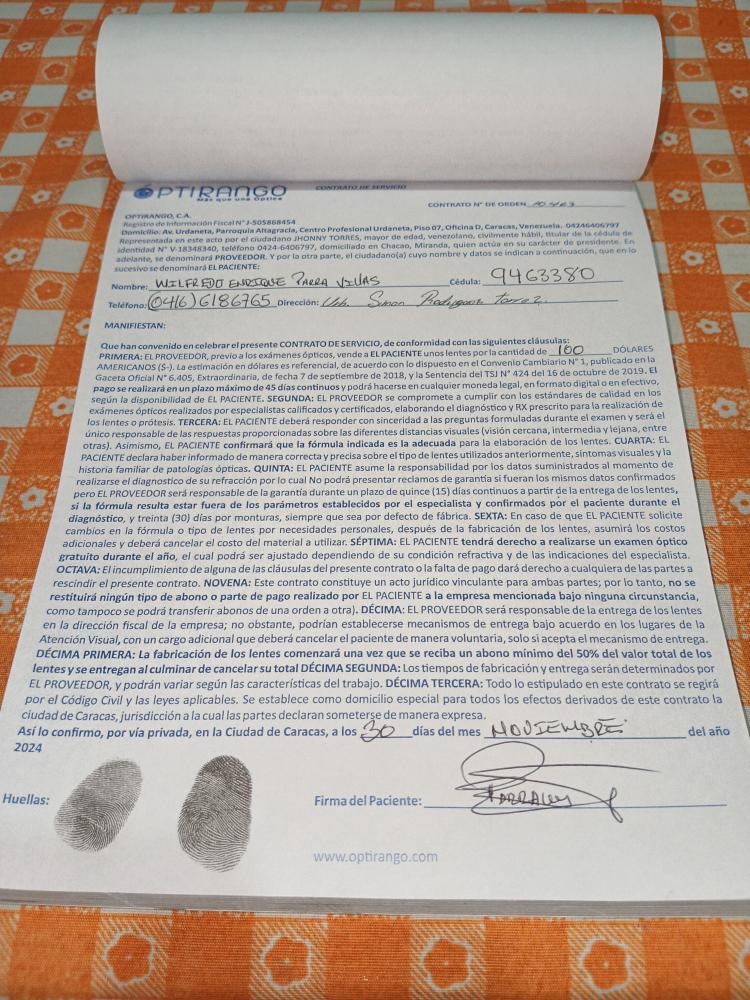 OPTIRANGO
Más que una Óptica
CONTRATO DE SERVICIO
CONTRATO N° DE ORDEN
OPTIRANGO, C.A.
Registro de Información Fiscal N° J-505868454
Domicilio: Av. Urdaneta, Parroquia Altagracia, Centro Profesional Urdaneta, Piso 07, Oficina D, Caracas, Venezuela. 04246406797
Representada en este acto por el ciudadano JHONNY TORRES, mayor de edad, venezolano, civilmente hábil, titular de la cédula de
identidad N° V-18348340, teléfono 0424-6406797, domiciliado en Chacao, Miranda, quien actúa en su carácter de presidente. En
adelante, se denominará PROVEEDOR. Y por la otra parte, el ciudadano(a) cuyo nombre y datos se indican a continuación, que en lo
sucesivo se denominará EL PACIENTE:
Nombre: WILFREDO ENRIQUE PARRA VILLAS Cédula: 9463380
Teléfono: (0416) 6186765 Dirección: Urb. Simon Rodriguez Torre 2.
MANIFIESTAN:
Que han convenido en celebrar el presente CONTRATO DE SERVICIO, de conformidad con las siguientes cláusulas:
PRIMERA: EL PROVEEDOR, previo a los exámenes ópticos, vende a EL PACIENTE unos lentes por la cantidad de 100 DÓLARES
AMERICANOS ($-). La estimación en dólares es referencial, de acuerdo con lo dispuesto en el Convenio Cambiario N° 1, publicado en la
Gaceta Oficial N° 6.405, Extraordinaria, de fecha 7 de septiembre de 2018, y la Sentencia del TSJ N° 424 del 16 de octubre de 2019. El
pago se realizará en un plazo máximo de 45 días continuos y podrá hacerse en cualquier moneda legal, en formato digital o en efectivo,
según la disponibilidad de EL PACIENTE. SEGUNDA: EL PROVEEDOR se compromete a cumplir con los estándares de calidad en los
exámenes ópticos realizados por especialistas calificados y certificados, elaborando el diagnóstico y RX prescrito para la realización de
los lentes o prótesis. TERCERA: EL PACIENTE deberá responder con sinceridad a las preguntas formuladas durante el examen y será el
único responsable de las respuestas proporcionadas sobre las diferentes distancias visuales (visión cercana, intermedia y lejana, entre
otras). Asimismo, EL PACIENTE confirmará que la fórmula indicada es la adecuada para la elaboración de los lentes. CUARTA: EL
PACIENTE declara haber informado de manera correcta y precisa sobre el tipo de lentes utilizados anteriormente, síntomas visuales y la
historia familiar de patologías ópticas. QUINTA: EL PACIENTE asume la responsabilidad por los datos suministrados al momento de
realizarse el diagnostico de su refracción por lo cual No podrá presentar reclamos de garantía si fueran los mismos datos confirmados
pero EL PROVEEDOR será responsable de la garantía durante un plazo de quince (15) días continuos a partir de la entrega de los lentes,
si la fórmula resulta estar fuera de los parámetros establecidos por el especialista y confirmados por el paciente durante el
diagnóstico, y treinta (30) días por monturas, siempre que sea por defecto de fábrica. SEXTA: En caso de que EL PACIENTE solicite
cambios en la fórmula o tipo de lentes por necesidades personales, después de la fabricación de los lentes, asumirá los costos
adicionales y deberá cancelar el costo del material a utilizar. SÉPTIMA: EL PACIENTE tendrá derecho a realizarse un examen óptico
gratuito durante el año, el cual podrá ser ajustado dependiendo de su condición refractiva y de las indicaciones del especialista.
OCTAVA: El incumplimiento de alguna de las cláusulas del presente contrato o la falta de pago dará derecho a cualquiera de las partes a
rescindir el presente contrato. NOVENA: Este contrato constituye un acto jurídico vinculante para ambas partes; por lo tanto, no se
restituirá ningún tipo de abono o parte de pago realizado por EL PACIENTE a la empresa mencionada bajo ninguna circunstancia,
como tampoco se podrá transferir abonos de una orden a otra). DÉCIMA: EL PROVEEDOR será responsable de la entrega de los lentes
en la dirección fiscal de la empresa; no obstante, podrían establecerse mecanismos de entrega bajo acuerdo en los lugares de la
Atención Visual, con un cargo adicional que deberá cancelar el paciente de manera voluntaria, solo si acepta el mecanismo de entrega.
DÉCIMA PRIMERA: La fabricación de los lentes comenzará una vez que se reciba un abono mínimo del 50% del valor total de los
lentes y se entregan al culminar de cancelar su total DÉCIMA SEGUNDA: Los tiempos de fabricación y entrega serán determinados por
EL PROVEEDOR, y podrán variar según las características del trabajo. DÉCIMA TERCERA: Todo lo estipulado en este contrato se regirá
por el Código Civil y las leyes aplicables. Se establece como domicilio especial para todos los efectos derivados de este contrato la
ciudad de Caracas, jurisdicción a la cual las partes declaran someterse de manera expresa.
Así lo confirmo, por vía privada, en la Ciudad de Caracas, a los 30 días del mes NOVIEMBRE del año
2024
Huellas:
Firma del Paciente:
www.optirango.com